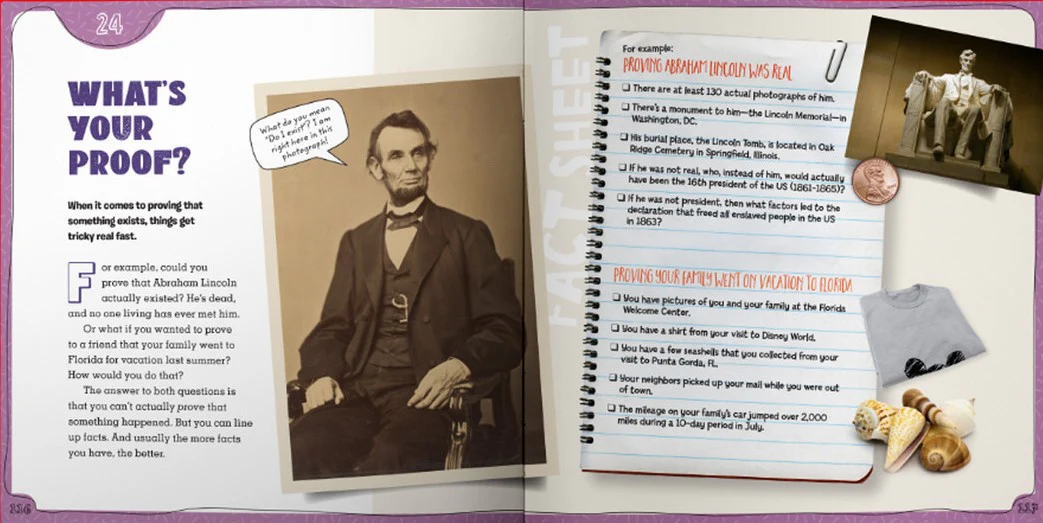 24
WHAT'S
YOUR
PROOF?
When it comes to proving that
something exists, things get
tricky real fast.
For example, could you
prove that Abraham Lincoln
actually existed? He's dead,
and no one living has ever met him.
Or what if you wanted to prove
to a friend that your family went to
Florida for vacation last summer?
How would you do that?
The answer to both questions is
that you can't actually prove that
something happened. But you can line
up facts. And usually the more facts
you have, the better.
116
What do you mean
"Do I exist"? I am
right here in this
photograph!
FACT SHEET
For example:
PROVING ABRAHAM LINCOLN WAS REAL
There are at least 130 actual photographs of him.
There's a monument to him—the Lincoln Memorial—in
Washington, DC.
His burial place, the Lincoln Tomb, is located in Oak
Ridge Cemetery in Springfield, Illinois.
If he was not real, who, instead of him, would actually
have been the 16th president of the US (1861-1865)?
If he was not president, then what factors led to the
declaration that freed all enslaved people in the US
in 1863?
PROVING YOUR FAMILY WENT ON VACATION TO FLORIDA
You have pictures of you and your family at the Florida
Welcome Center.
You have a shirt from your visit to Disney World.
You have a few seashells that you collected from your
visit to Punta Gorda, FL.
Your neighbors picked up your mail while you were out
of town.
The mileage on your family's car jumped over 2,000
miles during a 10-day period in July.
117